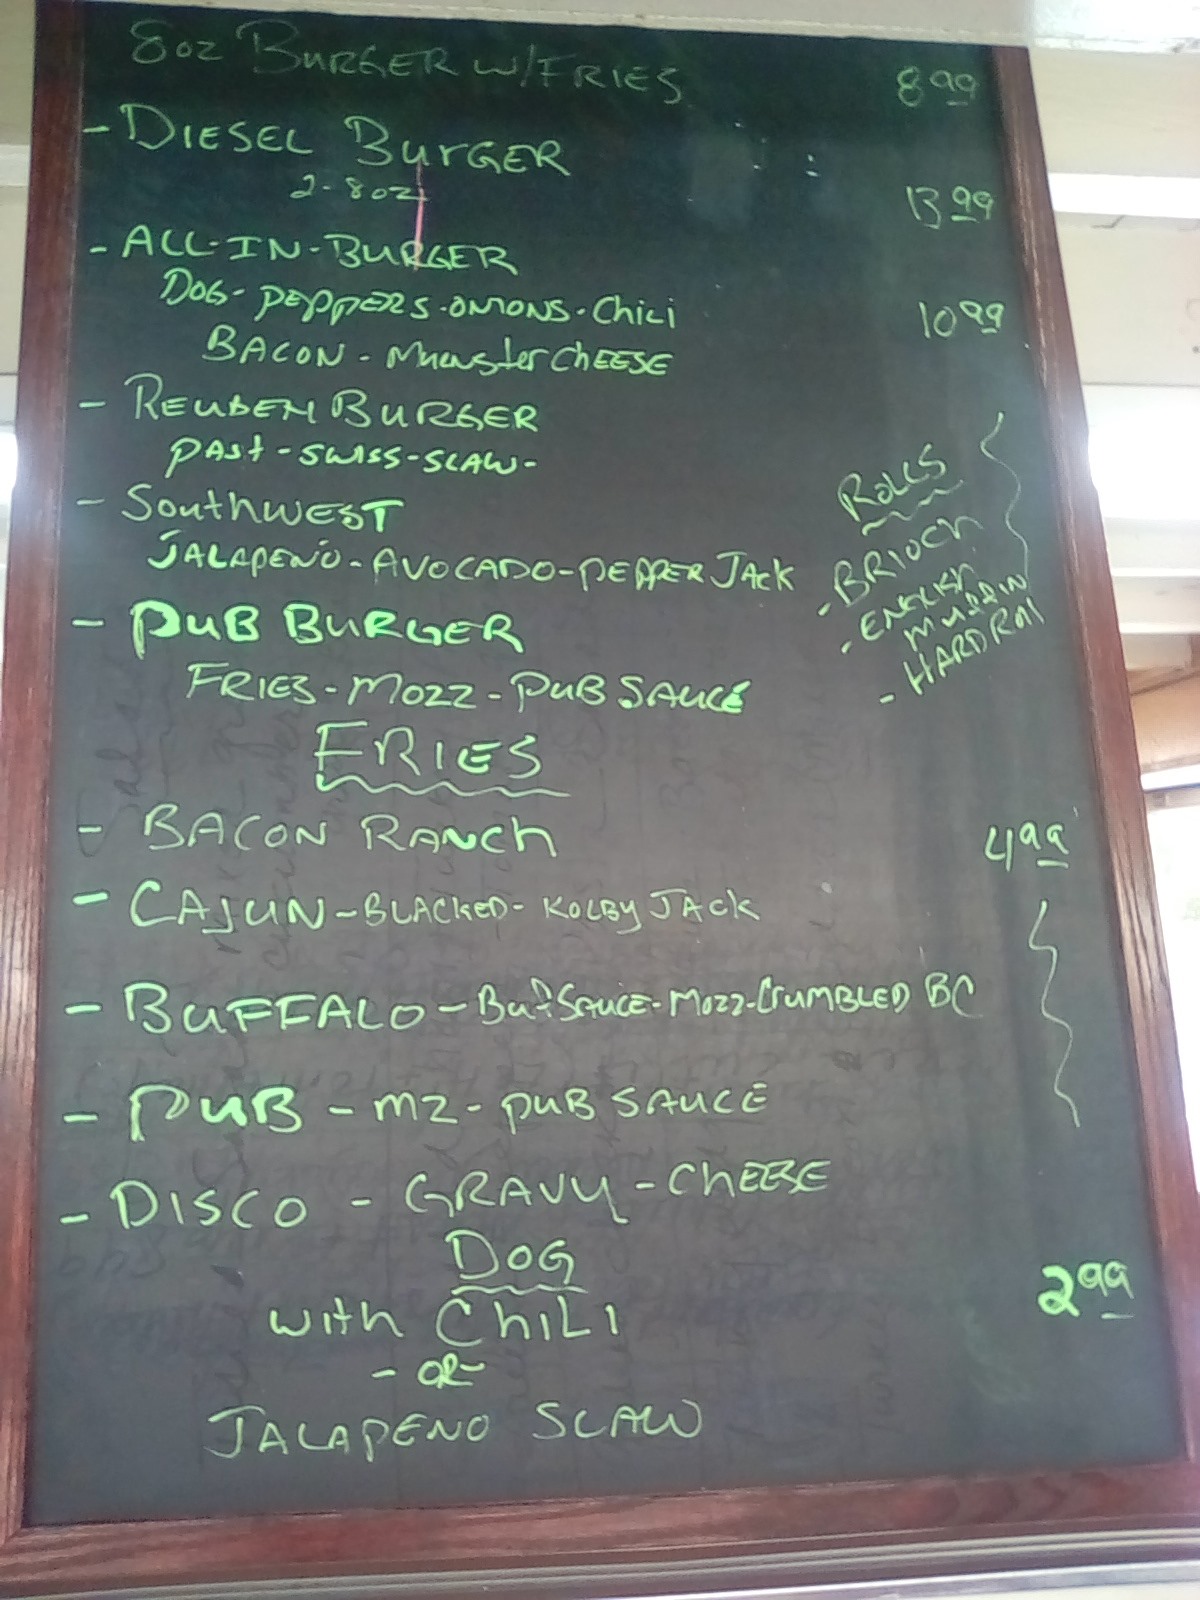 8oz BURGER W/FRIES 8 99
- DIESEL BURGER
2-8oz 13 99
- ALL-IN-BURGER
DOG-PEPPERS-ONIONS-Chili 10 99
BACON-MuensterCHEESE
- REUBEN BURGER
PASt-SWISS-SLAW-
- SouthWEST
JALAPEÑO-AVOCADO-PEPPER JACK
- PUB BURGER
FRIES-MOZZ-PUB SAUCE
ROLLS
- BRIOCH
- ENGLISH
MUFFIN
- HARD Roll
FRIES
- BACON RANCH 4 99
- CAJUN-BLACKED-KOLBY JACK
- BUFFALO-Buf SAUCE-MOZZ-CrUMBLED BC
- PUB-MZ-PUB SAUCE
- DISCO-GRAVY-CHEESE
DOG 2 99
with ChiLI
- OR-
JALAPENO SLAW